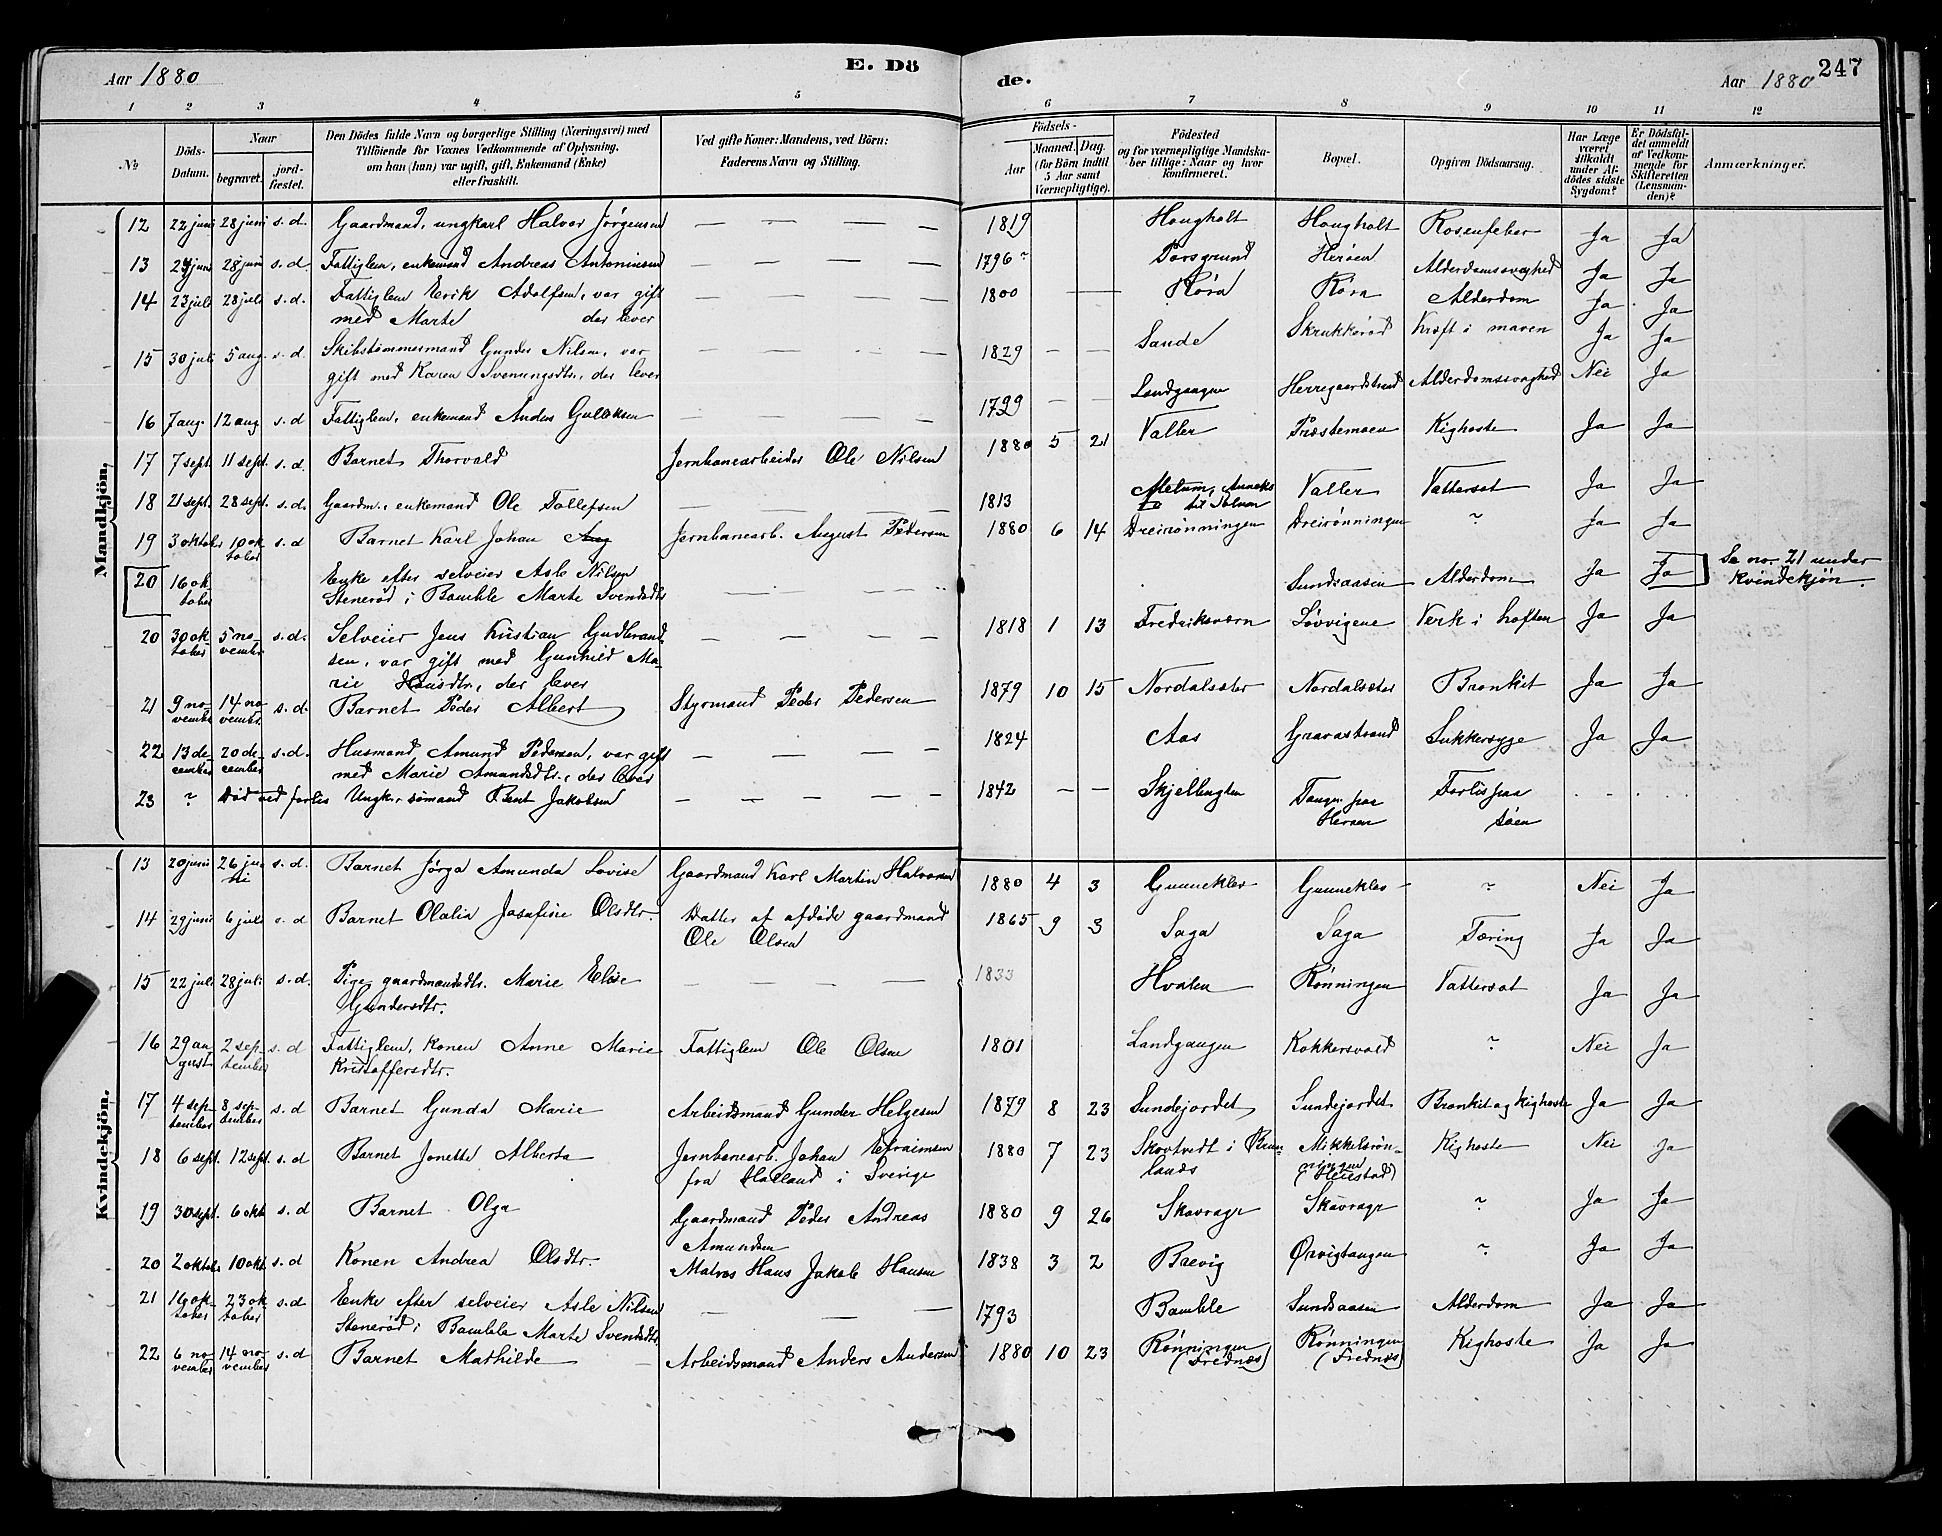 Aar 1880
E. Dö
de.
Aar 1880
247
1 2 3 4 5 6 7 8 9 10 11 12
No
Döds-Datum.
Naar
begravet.
jord-fæstet.
Den Dödes fulde Navn og borgerlige Stilling (Næringsvei) med
Tilföiende for Voxnes Vedkommende af Oplysning,
om han (hun) var ugift, gift, Enkemand (Enke)
eller fraskilt.
Ved gifte Koner: Mandens, ved Börn:
Faderens Navn og Stilling.
Födsels-
Aar
Maaned. Dag.
(for Börn indtil
5 Aar samt
Værnepligtige).
Födested
og for værnepligtige Mandska-
ber tillige: Naar og hvor
konfirmeret.
Bopæl.
Opgiven Dödsaarsag.
Har Læge
været
tilkaldt
under Af-
dödes sidste
Sygdom?
Er Dödsfal-
det anmeldt
af Vedkom-
mende for
Skifteretten
(Lensman-
den)?
Anmærkninger.
Mandkjön.
12 22 juni 28 juni s. d. Gaardmand, ungkarl Halvor Jørgensen — — — 1819 Hougholt Hougholt Rosenfeber Ja Ja
13 24 juni 28 juni s. d. Fattiglem, enkemand Andreas Antoninsen — — — 1796 ~ Porsgrund Herøen Alderdomssvaghed Ja Ja
14 23 juli 28 juli s. d. Fattiglem Erik Adolfsen, var gift
med Marte der lever — — — 1800 — Røra Røra Alderdom Ja Ja
15 30 juli 5 aug. s. d. Skibstømmermand Gunder Nilsen, var
gift med Karen Svenungsdtr., der lever — — — 1829 — — Sande Skrukkerød Kræft i maven Ja Ja
16 7 aug. 12 aug. s. d Fattiglem, enkemand Anders Gulleksen — — — 1799 — — Landgangen Herregaardstrand Alderdomssvaghed Nei Ja
17 7 sept. 11 sept. s. d. Barnet Thorvald Jernbanearbeider Ole Nilsen 1880 5 21 Valler Præstemoen Kighoste Ja Ja
18 21 sept. 28 sept. s. d. Gaardm., enkemand Ole Tollefsen — — — 1813 Melum, Anneks
til Solum Valler Vattersot Ja Ja
19 3 oktober 10 ok
tober s. d Barnet Karl Johan Aug Jernbanearb. August Pedersen 1880 6 14 Dreirønningen Dreirønningen ~ Ja Ja
20 16 ok
tober Enke efter selveier Asle Nilsen
Stenerød i Bamble Marte Svendsdtr — — — Sundsaasen Alderdom Ja Ja Se no. 21 under
kvindekjøn.
20 30 ok
tober 5 no-
vember s. d. Selveier Jens Kristian Gudbrand-
sen, var gift med Gunhild Ma-
rie Hansdtr., der lever — — — 1818 1 13 Fredriksværn Løvvigene Verk i hoften Ja Ja
21 9 no-
vember 14 no-
vember s. d. Barnet Peder Albert Styrmand Peder Pedersen 1879 10 15 Nordalsæter Nordalsæter Bronkit Ja Ja
22 13 de-
cember 20 de-
cember s. d. Husmand Amund Pedersen, var gift
med Marie Amundsdtr., der lever — — — 1824 Aas Gravastrand Sukkersyge Ja Ja
23 ~ Død ved forlis Ungk., sømand Bent Jakobsen — — — — 1842 — — Skjelbugten Tangen paa
Herøen Forlis paa
søen - - -
Kvindekjön.
13 20 juni 26 ju-
ni s. d. Barnet Jørga Amunda Lovise Gaardmand Karl Martin Halvorsen 1880 4 3 Gunneklev Gunneklev ~ Nei Ja
14 29 juni 6 juli s. d Barnet Olalia Josefine Olsdtr. Datter af afdøde gaardmand
Ole Olsen 1865 9 3 Saga Saga Tæring Ja Ja
15 22 juli 28 juli s. d. Pige, gaardmandsdtr. Marie Elise
Gundersdtr. — — — 1833 Hvalen Rønningen Vattersot Ja Ja
16 29 au
gust 2 sep-
tember s. d Fattiglem, konen Anne Marie
Kristoffersdtr. Fattiglem Ole Olsen 1801 Landgangen Kokkersvold ~ Nei Ja
17 4 sep-
tember 8 sep-
tember s. d Barnet Gunda Marie Arbeidsmand Gunder Helgesen 1879 8 23 Sundejordet Sundejordet Bronkit og kighoste Ja Ja
18 6 sept. 12 sept. s. d Barnet Jonette Alberta Jernbanearb. Johan Efraimsen
fra Halland i Sverige 1880 7 23 Skovtvedt i Brun-
lanæs Mikkelsrøn-
ningen
(Heistad) Kighoste Nei Ja
19 30 sept. 6 okt. s. d Barnet Olga Gaardmand Peder Andreas
Amundsen 1880 9 26 Skavrager Skavrager ~ Ja Ja
20 2 oktober 10 okt. s. d Konen Andrea Olsdtr. Matros Hans Jakob Hansen 1838 3 2 Brevig Ørvigtangen ~ Ja Ja
21 16 ok-
tober 23 ok
tober s. d Enke efter selveier Asle Nilsen
Stenerød i Bamble Marte Svendsdtr. — — — 1793 Bamble Sundsaasen Alderdom Ja Ja
22 6 no-
vember 14 no-
vember s. d Barnet Mathilde — Arbeidsmand Anders Andersen 1880 10 23 Rønningen
(Frednæs) Rønningen
(Frednæs) Kighoste Ja Ja